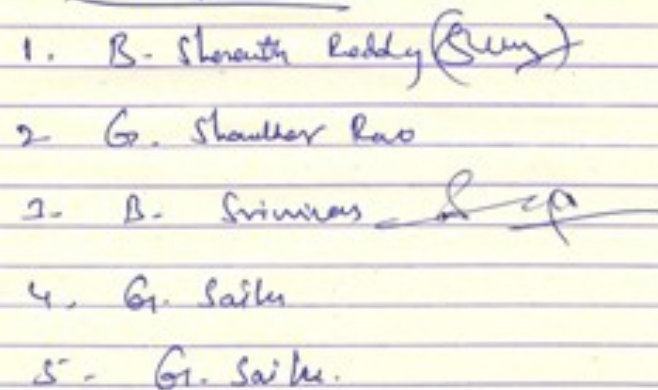 1. B. Sharath Reddy
2 G. Shankar Rao
3. B. Srinivas
4. G. Sailu
5. G. Sailu.